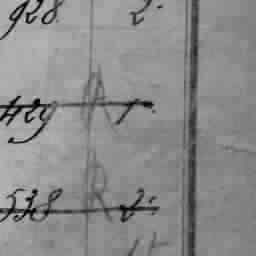 928 2.
429 R 1.
538 R 2.